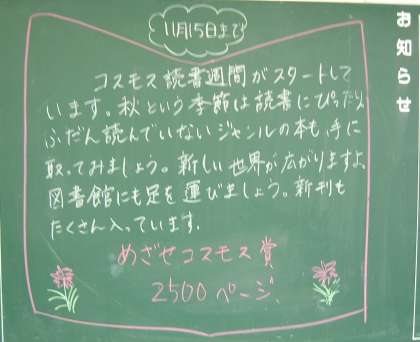 お知らせ
11月15日まで
コスモス読書週間がスタートして
います。秋という季節は読書にぴったり。
ふだん読んでいないジャンルの本も、手に
取ってみましょう。新しい世界が広がりますよ。
図書館にも足を運びましょう。新刊も
たくさん入っています。
めざせコスモス賞
2500ページ